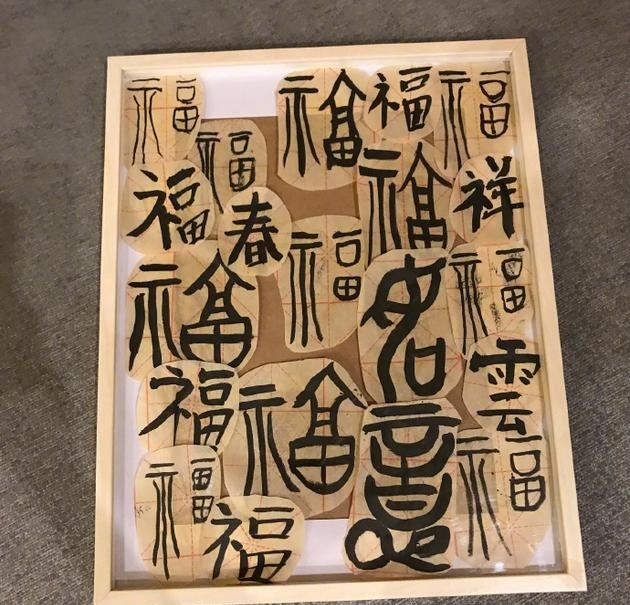 福 福 福 福
福
福 春 福 祥
福 福
福 如
雲
福 福 意
福 福
福